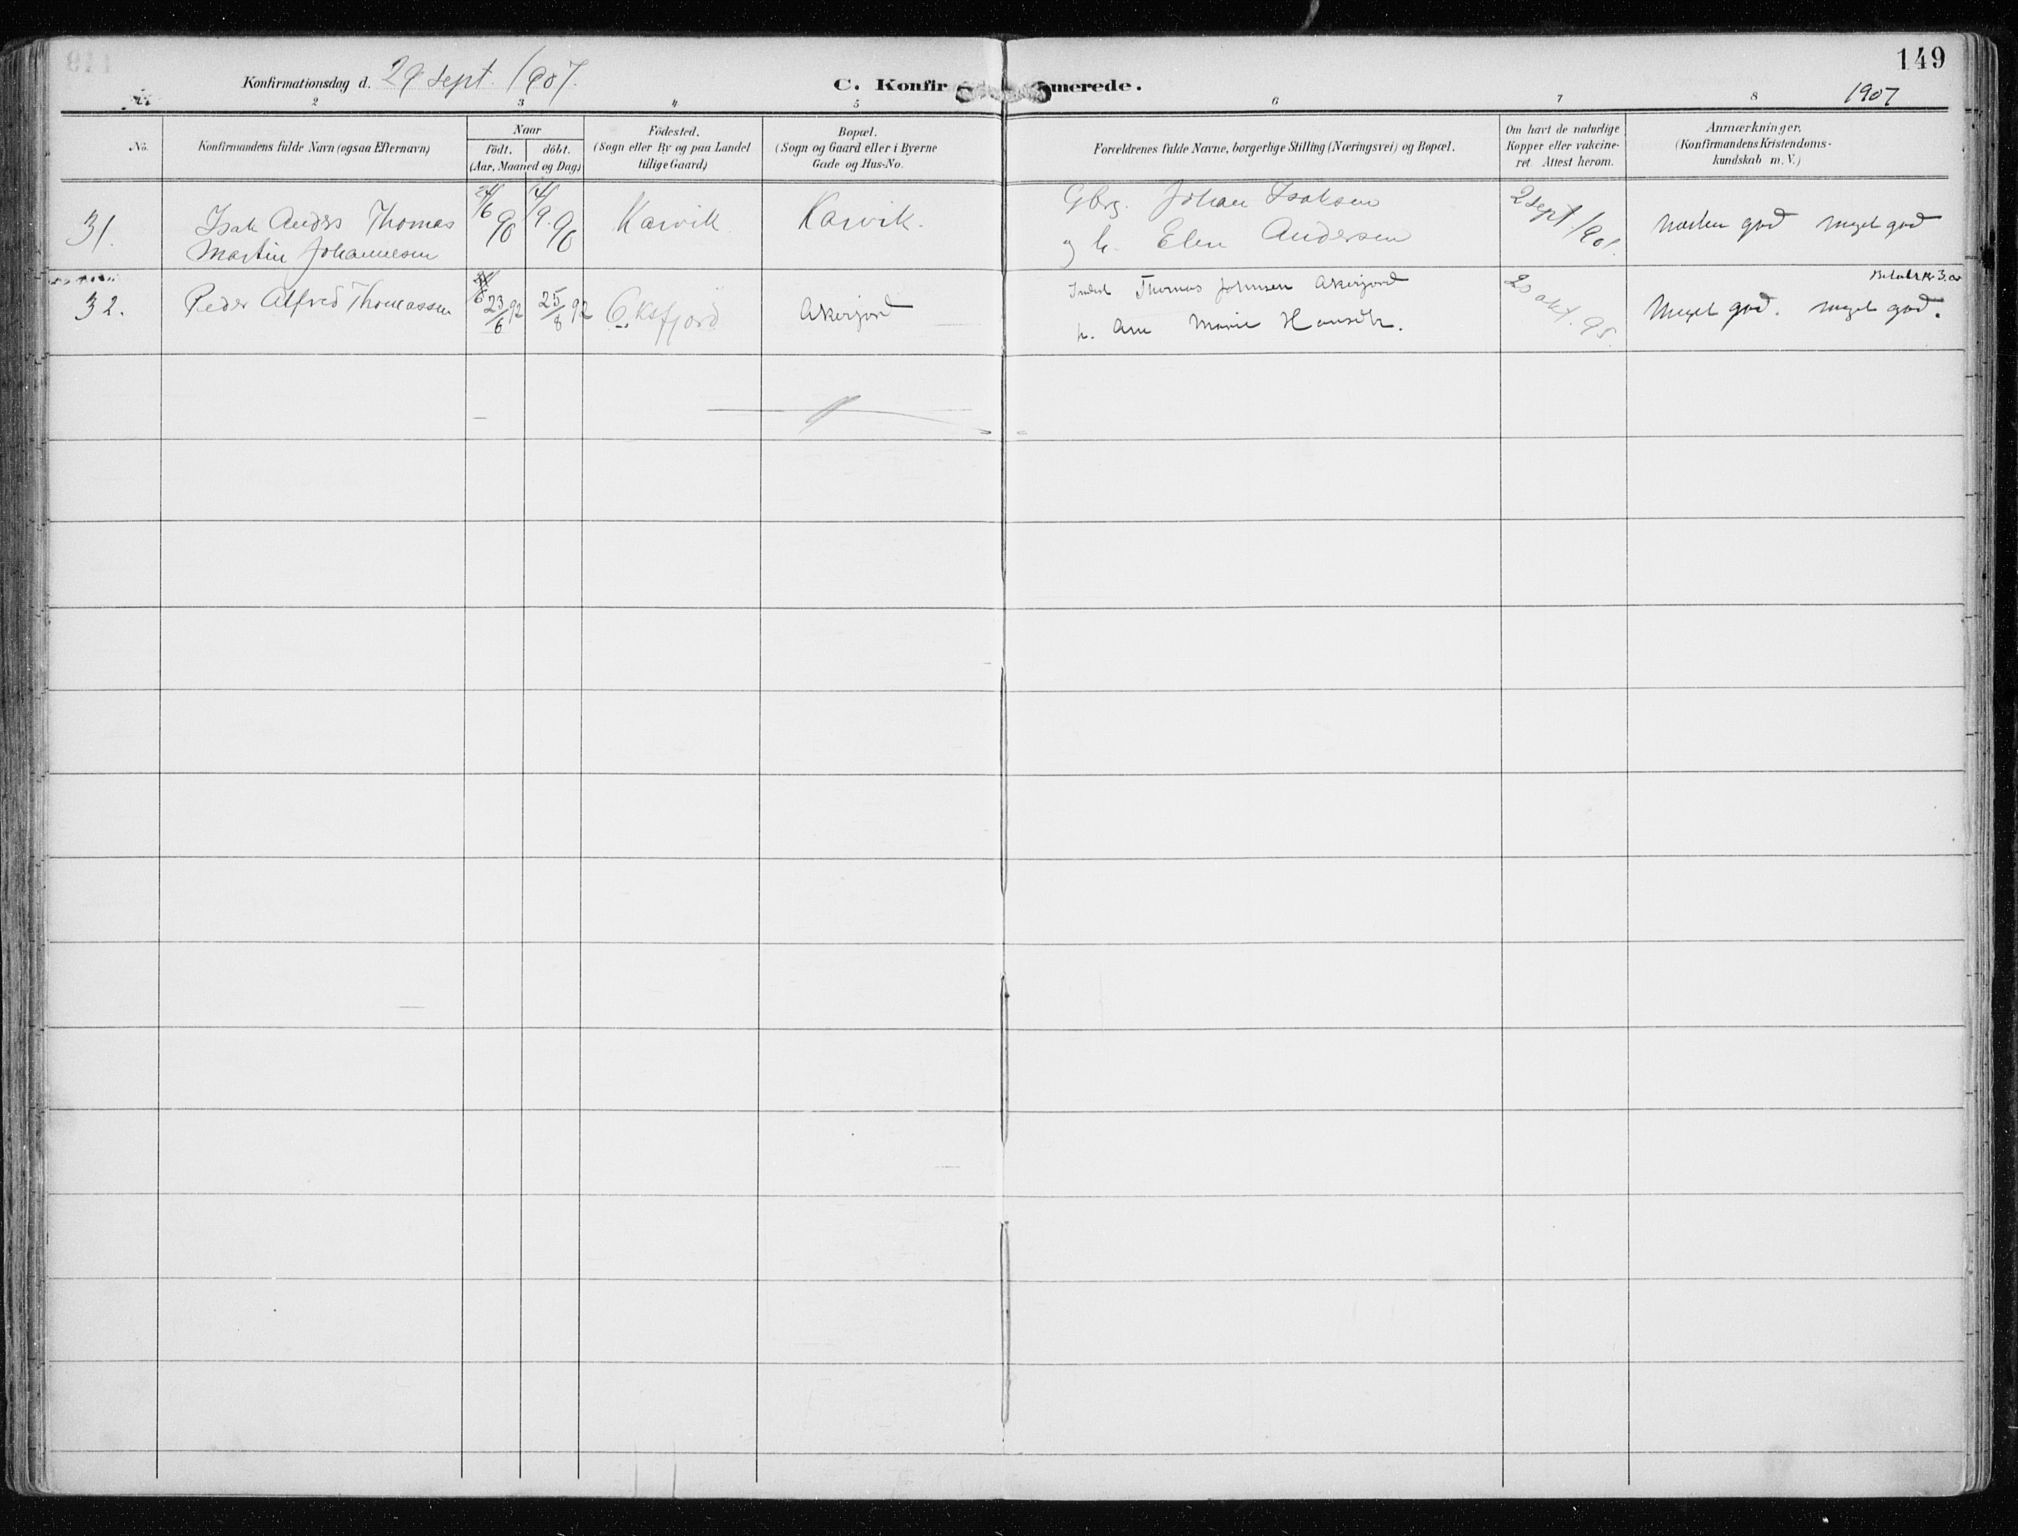 149
Konfirmationsdag d. 29 sept. 1907.
C. Konfirmerede.
1907
2 3 4 5 6 7 8
No.
Konfirmandens fulde Navn (ogsaa Efternavn)
Naar
født. døbt.
(Aar, Maaned og Dag)
Fødested.
(Sogn eller By og paa Landet
tillige Gaard)
Bopæl.
(Sogn og Gaard eller i Byerne
Gade og Hus-No.
Forældrenes fulde Navne, borgerlige Stilling (Næringsvei) og Bopæl.
Om havt de naturlige
Kopper eller vakcine-
ret. Attest herom.
Anmærkninger.
(Konfirmandens Kristendoms-
kundskab m. V.)
31.
Isak Anders Thomas
Martin Johannesen
/6 90
/9. 90
Karvik
Karvik.
Gbrg. Johan Isaksen
og h. Elen Andersen
2 sept 1901.
Næsten god meget god
32.
Peder Alfred Thomassen
23/6 92
25/8 92
Oksfjord
Akerjord
Inderst Thomas Johnsen Akerjord
h. Ane Marie Hansdtr.
2 okt. 95.
Meget god. meget god.